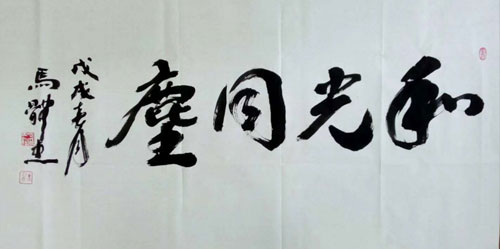 和光同塵
戊戌春月
馬